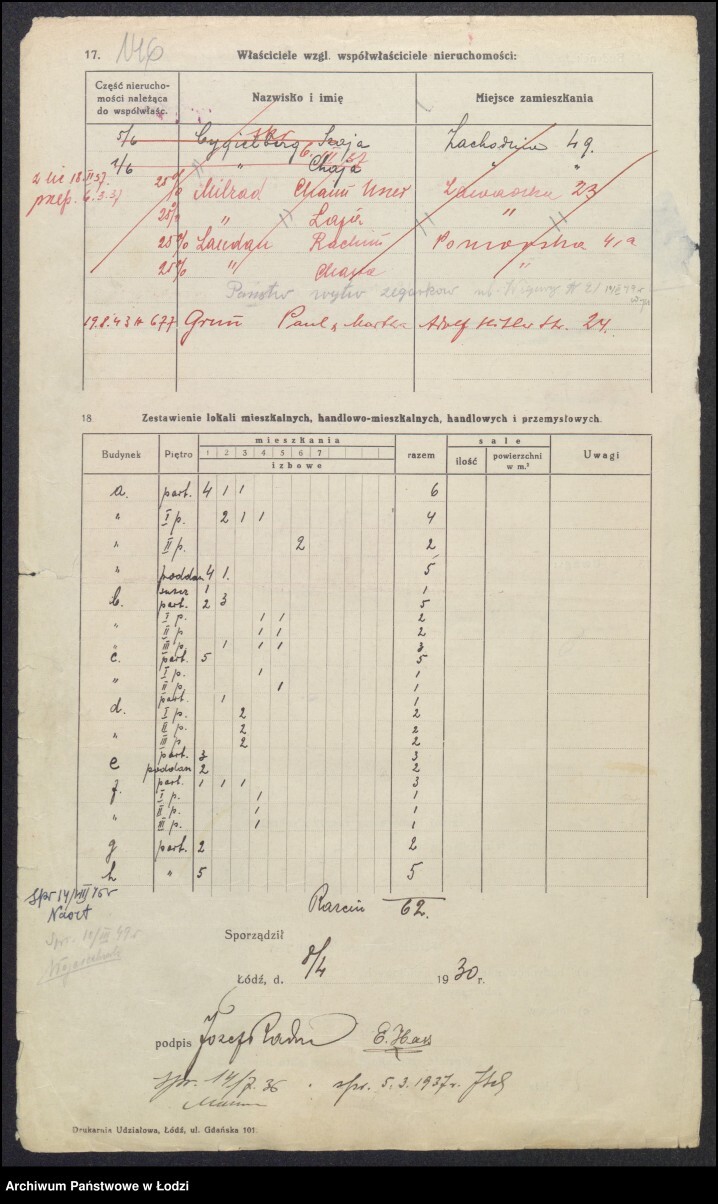 17. Właściciele wzgl. współwłaściciele nieruchomości:
Część nierucho-
mości należąca
do współwłaśc.
Nazwisko i imię
Miejsce zamieszkania
5/6 Cygielberg Szaja Zachodnia 49.
1/6 " Chaja "
25% Milrad Chaim Zawadzka 23
25% " Łaja "
25% Landau Rachm 41a
25% " Chaja "
Państw wytw zegarków
19.8.43 677. Grun Paul Adolf Hitler Str. 24.
18. Zestawienie lokali mieszkalnych, handlowo-mieszkalnych, handlowych i przemysłowych.
Budynek Piętro mieszkania razem sale Uwagi
1 2 3 4 5 6 7 ilość powierzchni
izbowe w m.²
a. part. 4 1 1 6
" I p. 2 1 1 4
" II p. 2 2
" poddasz 4 1. 5
1 1
b. part. 2 3 5
I p. 1 1 2
" II p 1 1 2
" III p. 1 1 1 3
c. part. 5 5
I p. 1 1
" II p. 1 1
part. 1 1
d. I p. 2 2
II p. 2 2
" III p. 2 2
part. 3 3
e poddasz 2 2
f. part. 1 1 1 3
I p. 1 1
II p. 1 1
" III p. 1 1
g part. 2 2
h " 5 5
Razem 62.
Sporządził
Łódź, d. 8/4 1930 r.
podpis Józef E. Hass
spr. 14/7. 36 spr. 5.3.1937 r.
Drukarnia Udziałowa, Łódź, ul. Gdańska 101.
Archiwum Państwowe w Łodzi